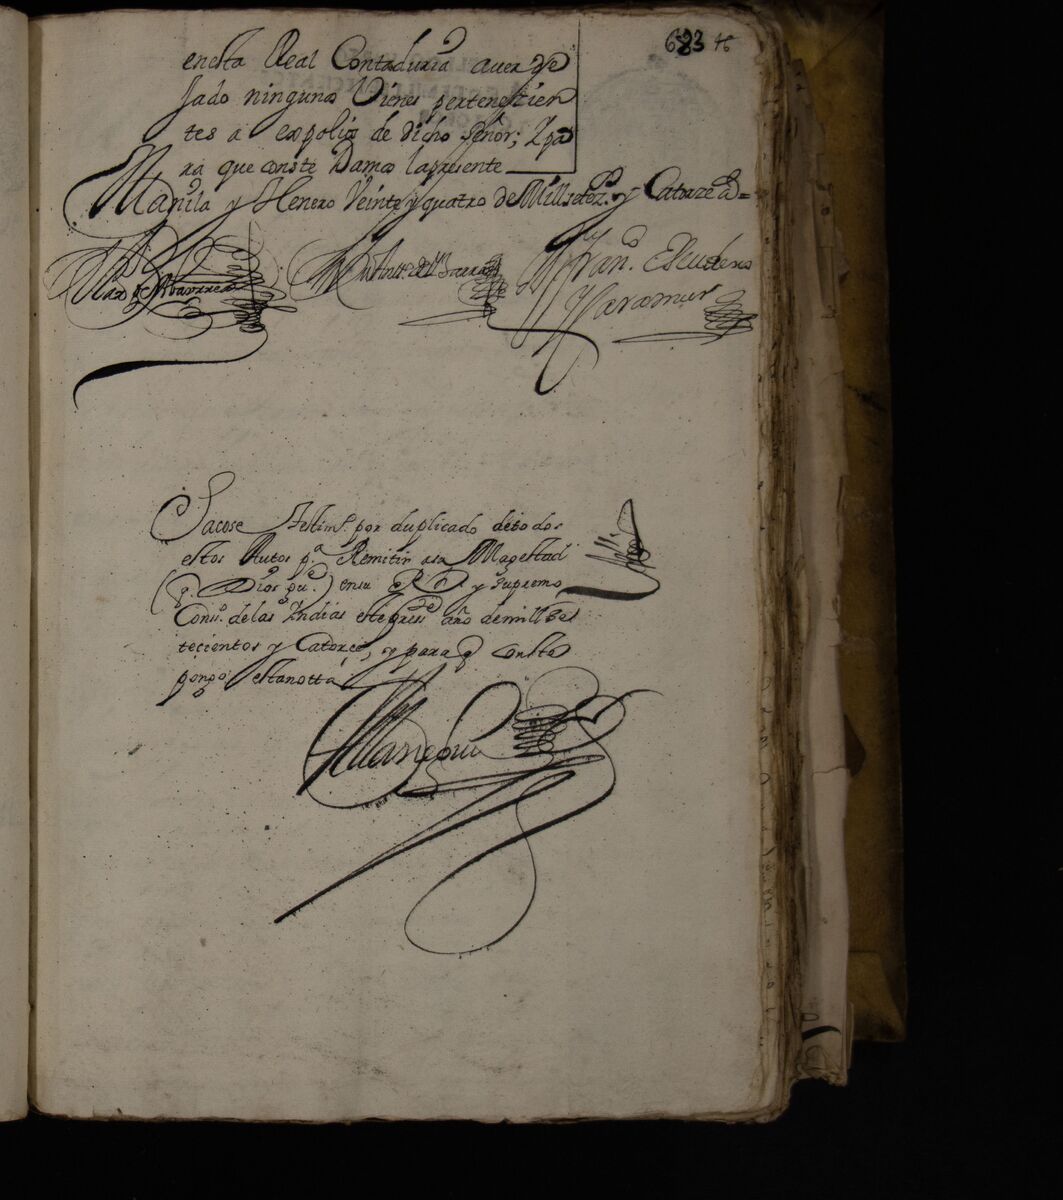 683 46
en esta Real Contaduria aver de
jado ningunos Vienes pertenezcien
tes a expolio de dicho señor; Y pa
ra que conste Damos la presente
Manila y Henero Veinte y quatro de Mill setez.s y Catorze a.s =
Franco. Escudero
Sacose testimo. por duplicado de todos
estos Autos p.a Remitir a su Magestad
(q. Dios gu.e) en su Rl. y Supremo
Conso. de las Indias este preste. año de mill se
tecientos y Catorce, y para q conste
pongo esta notta